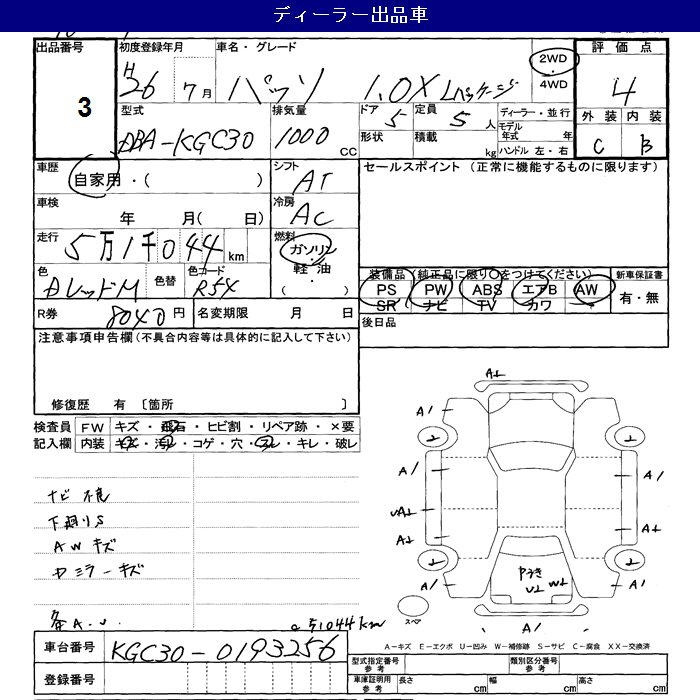 ディーラー出品車
出品番号 3
初度登録年月 H26 7月
車名・グレード パッソ 1.0X Lパッケージ
2WD
4WD
評価点 4
外装 内装
C B
型式 DBA-KGC30
排気量 1000 CC
ドア 5
形状
定員 5人
積載 kg
ディーラー・並行
モデル年式 年
ハンドル 左・右
車歴 自家用・( )
シフト AT
セールスポイント (正常に機能するものに限ります)
車検 年 月( 日)
冷房 AC
走行 5万1千044km
燃料 ガソリン・軽油・( )
色 レッドM
色替
色コード R54
装備品 (純正品に限り○をつけてください)
PS PW ABS エアB AW
SR ナビ TV カワ
新車保証書
有・無
R券 8040円
名変期限 月 日
後日品
注意事項申告欄(不具合内容等は具体的に記入して下さい)
修復歴 有 〔箇所 〕
検査員記入欄
FW キズ・飛石・ヒビ割・リペア跡・×要
内装 キズ・汚れ・コゲ・穴・スレ・キレ・破レ
ナビ 不良
下廻りS
AWキズ
ミラーキズ
51044km
A⊥
A/ A/
A/ A/
A⊥ A⊥
A/ A/
U⊥ W⊥
A/
スペア
車台番号 KGC30-0193256
登録番号
A－キズ E－エクボ U－凹み W－補修跡 S－サビ C－腐食 XX－交換済
型式指定番号 参考
類別区分番号 参考
車庫証明用 参考
長さ cm
幅 cm
高さ cm